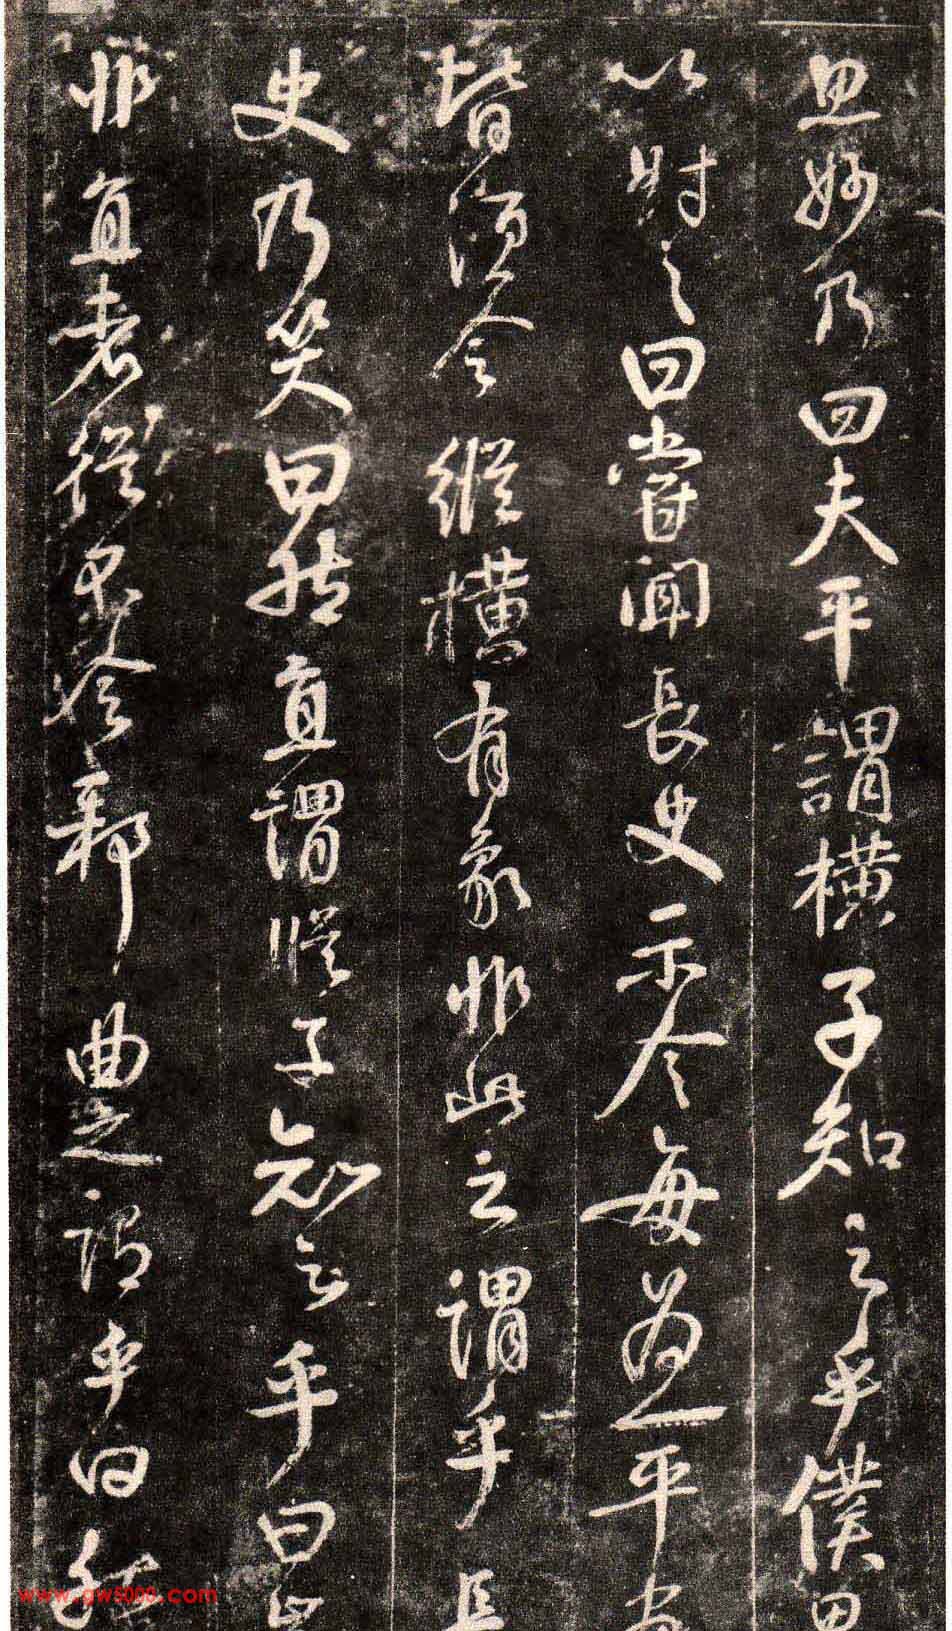 思妙乃曰夫平謂橫子知之乎僕思
以對之曰嘗聞長史示令每為一平
皆須令縱橫有象非此之謂乎長
史乃笑曰然直謂縱子知之乎曰
非直者從不令邪曲之謂乎曰然
www.gw5000.com